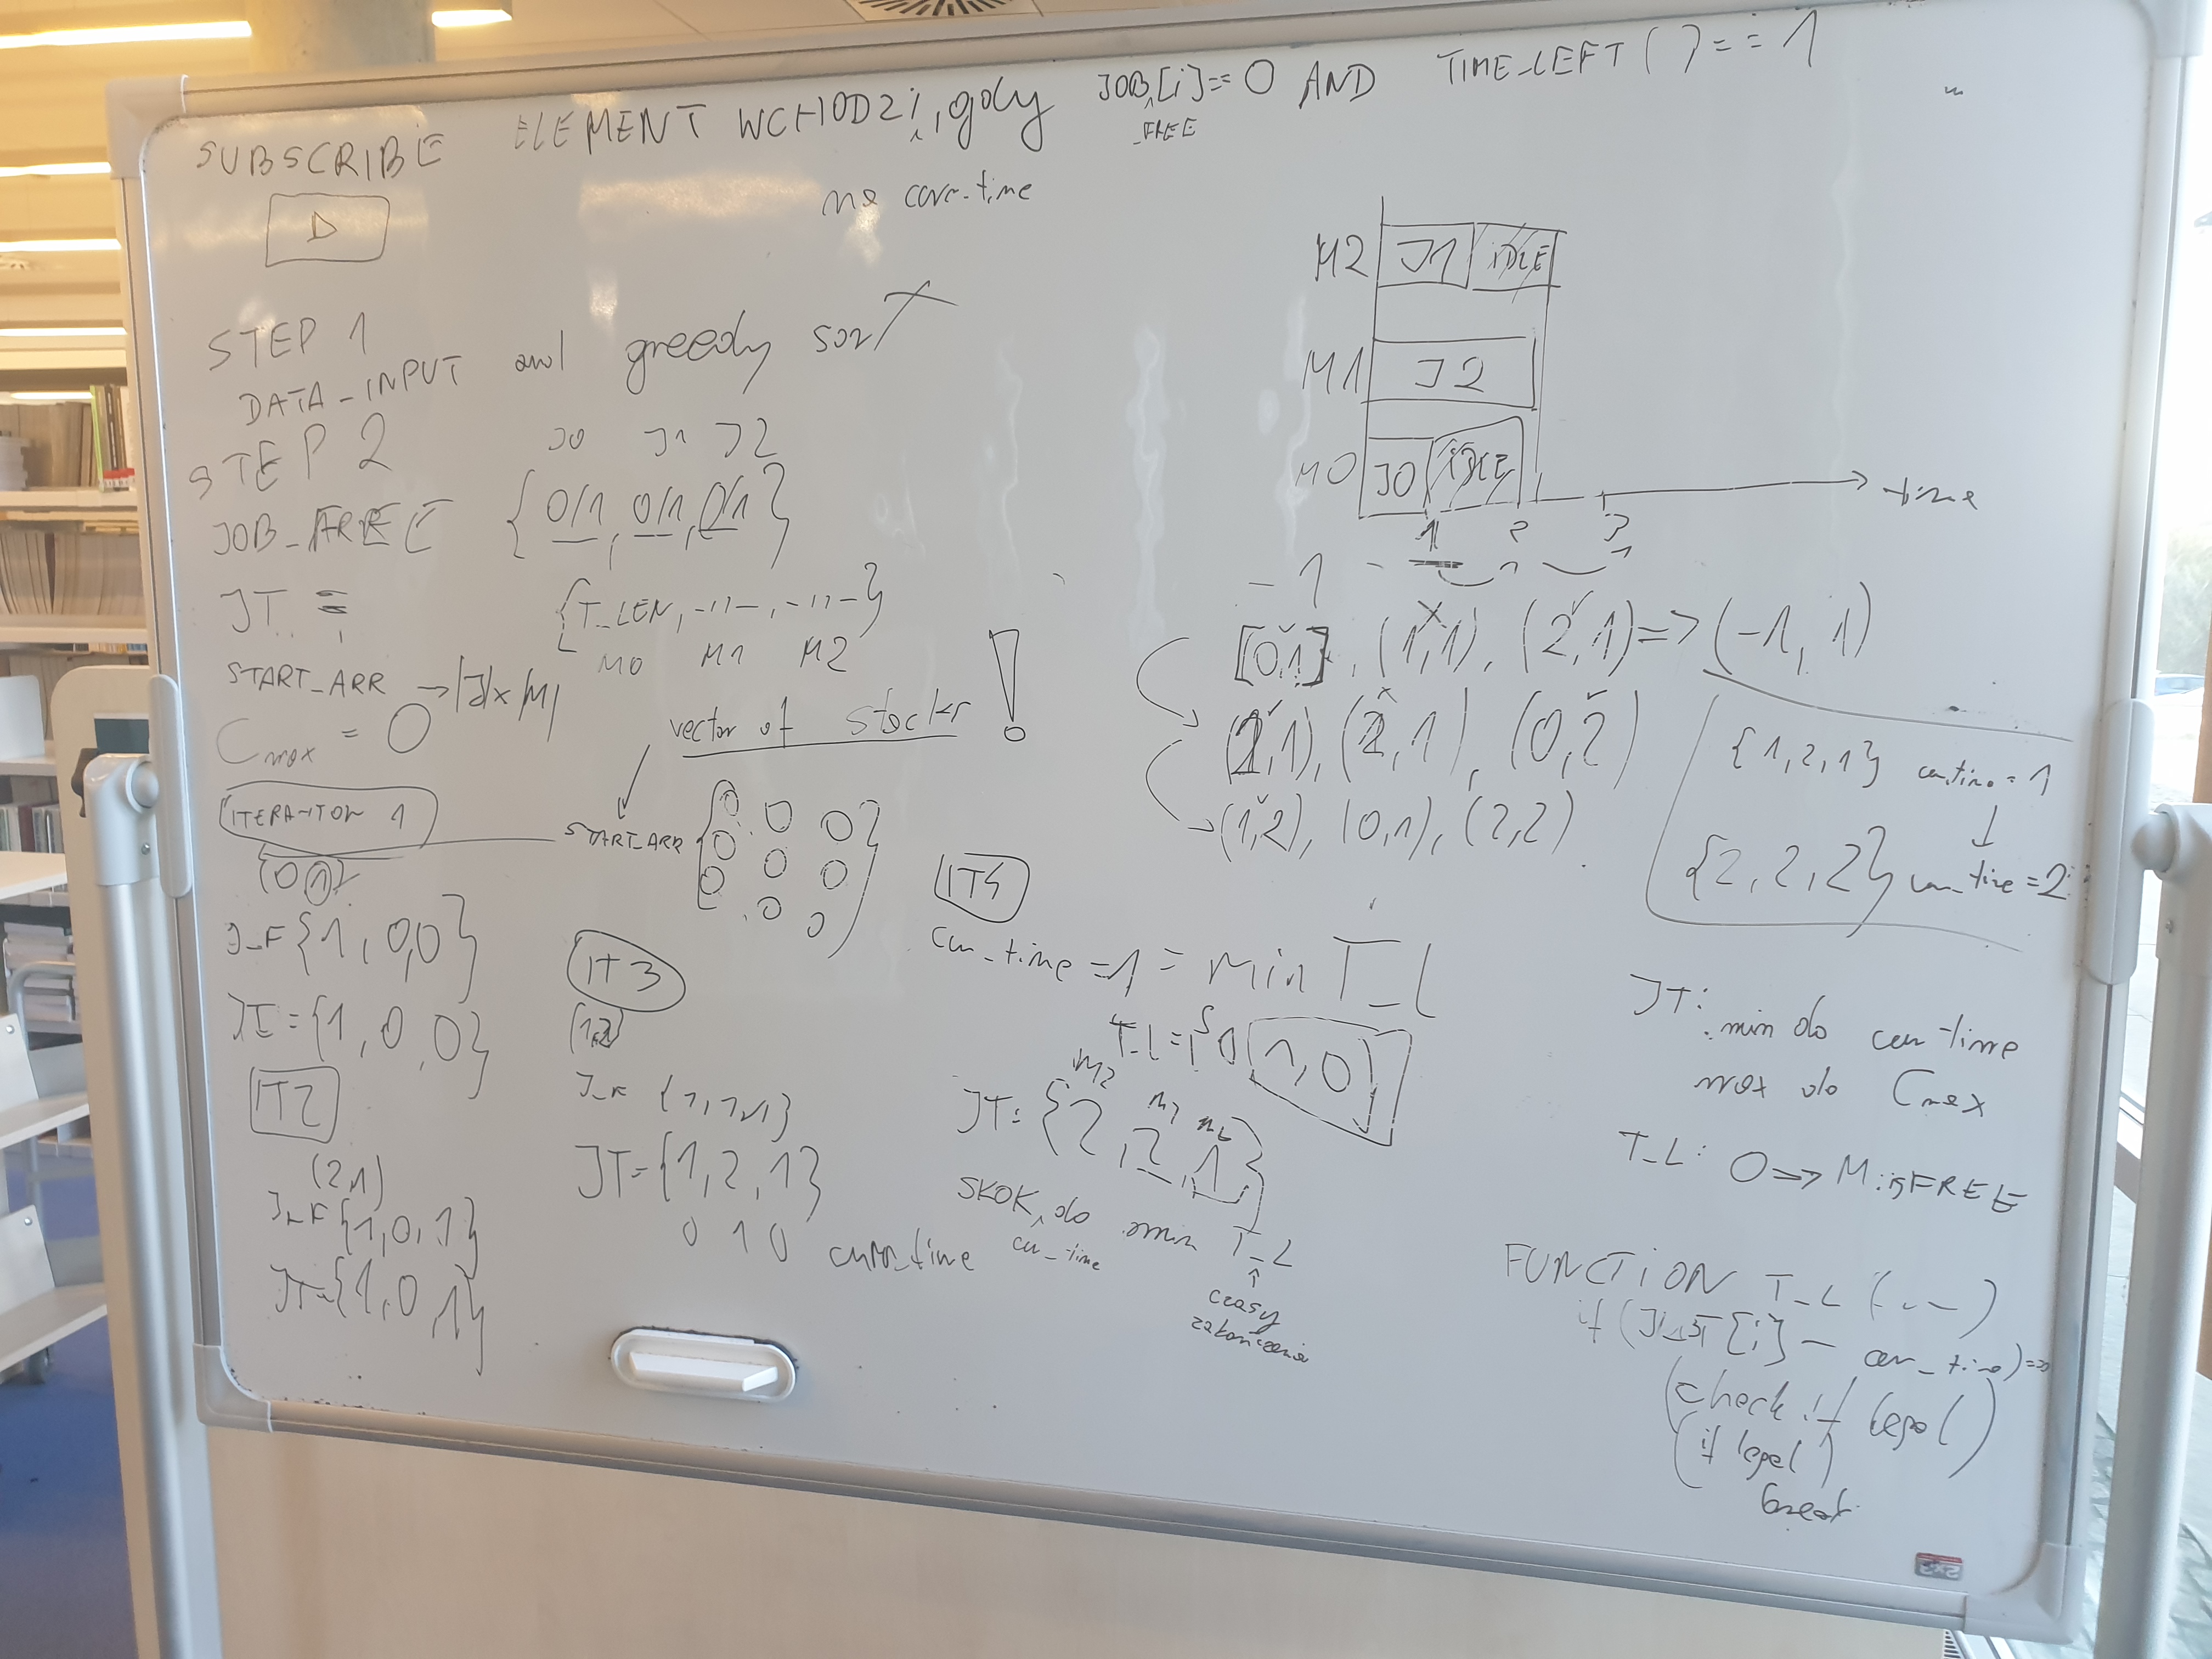 SUBSCRIBE ELEMENT WCHODZI, gdy JOB[i]==0 AND TIME_LEFT()==1
_FREE
na curr_time
STEP 1
DATA_INPUT and greedy sort
STEP 2
J0 J1 J2
JOB_FREE {0/1, 0/1, 0/1}
JT = {T_LEN, -"-, -"-}
M0 M1 M2
START_ARR → |J|x|M|
Cmax = 0
vector of stacks !
ITERATION 1
START_ARR
{0 0 0
0 0 0
0 0 0
0 0}
J_F {1, 0,0}
JT = {1, 0, 0}
IT2
(2,1)
J_F {1, 0, 1}
JT = {1, 0, 1}
IT3
(1,2)
J_F {1, 1, 1}
JT = {1, 2, 1}
0 1 0 curr_time
IT4
cur_time = 1 = min T_L
T_L = { 0 1, 0
M2 M1
JT: {2, 2, 1}
SKOK do min T_L
cur_time
↑
czasy
zakończenia
M2 J1 IDLE
M1 J2
M0 J0 IDLE
time
1 2 3
-1
[0,1], (1,1), (2,1) => (-1, 1)
(2,1), (2,1), (0,2)
(1,2), (0,1), (2,2)
{1, 2, 1} cur_time = 1
↓
{2, 2, 2} cur_time = 2
JT: min do cur_time
max do Cmax
T_L: 0 => M is FREE
FUNCTION T_L (...)
if (J_T[i] - cur_time)
(check if legal)
(if legal)
break